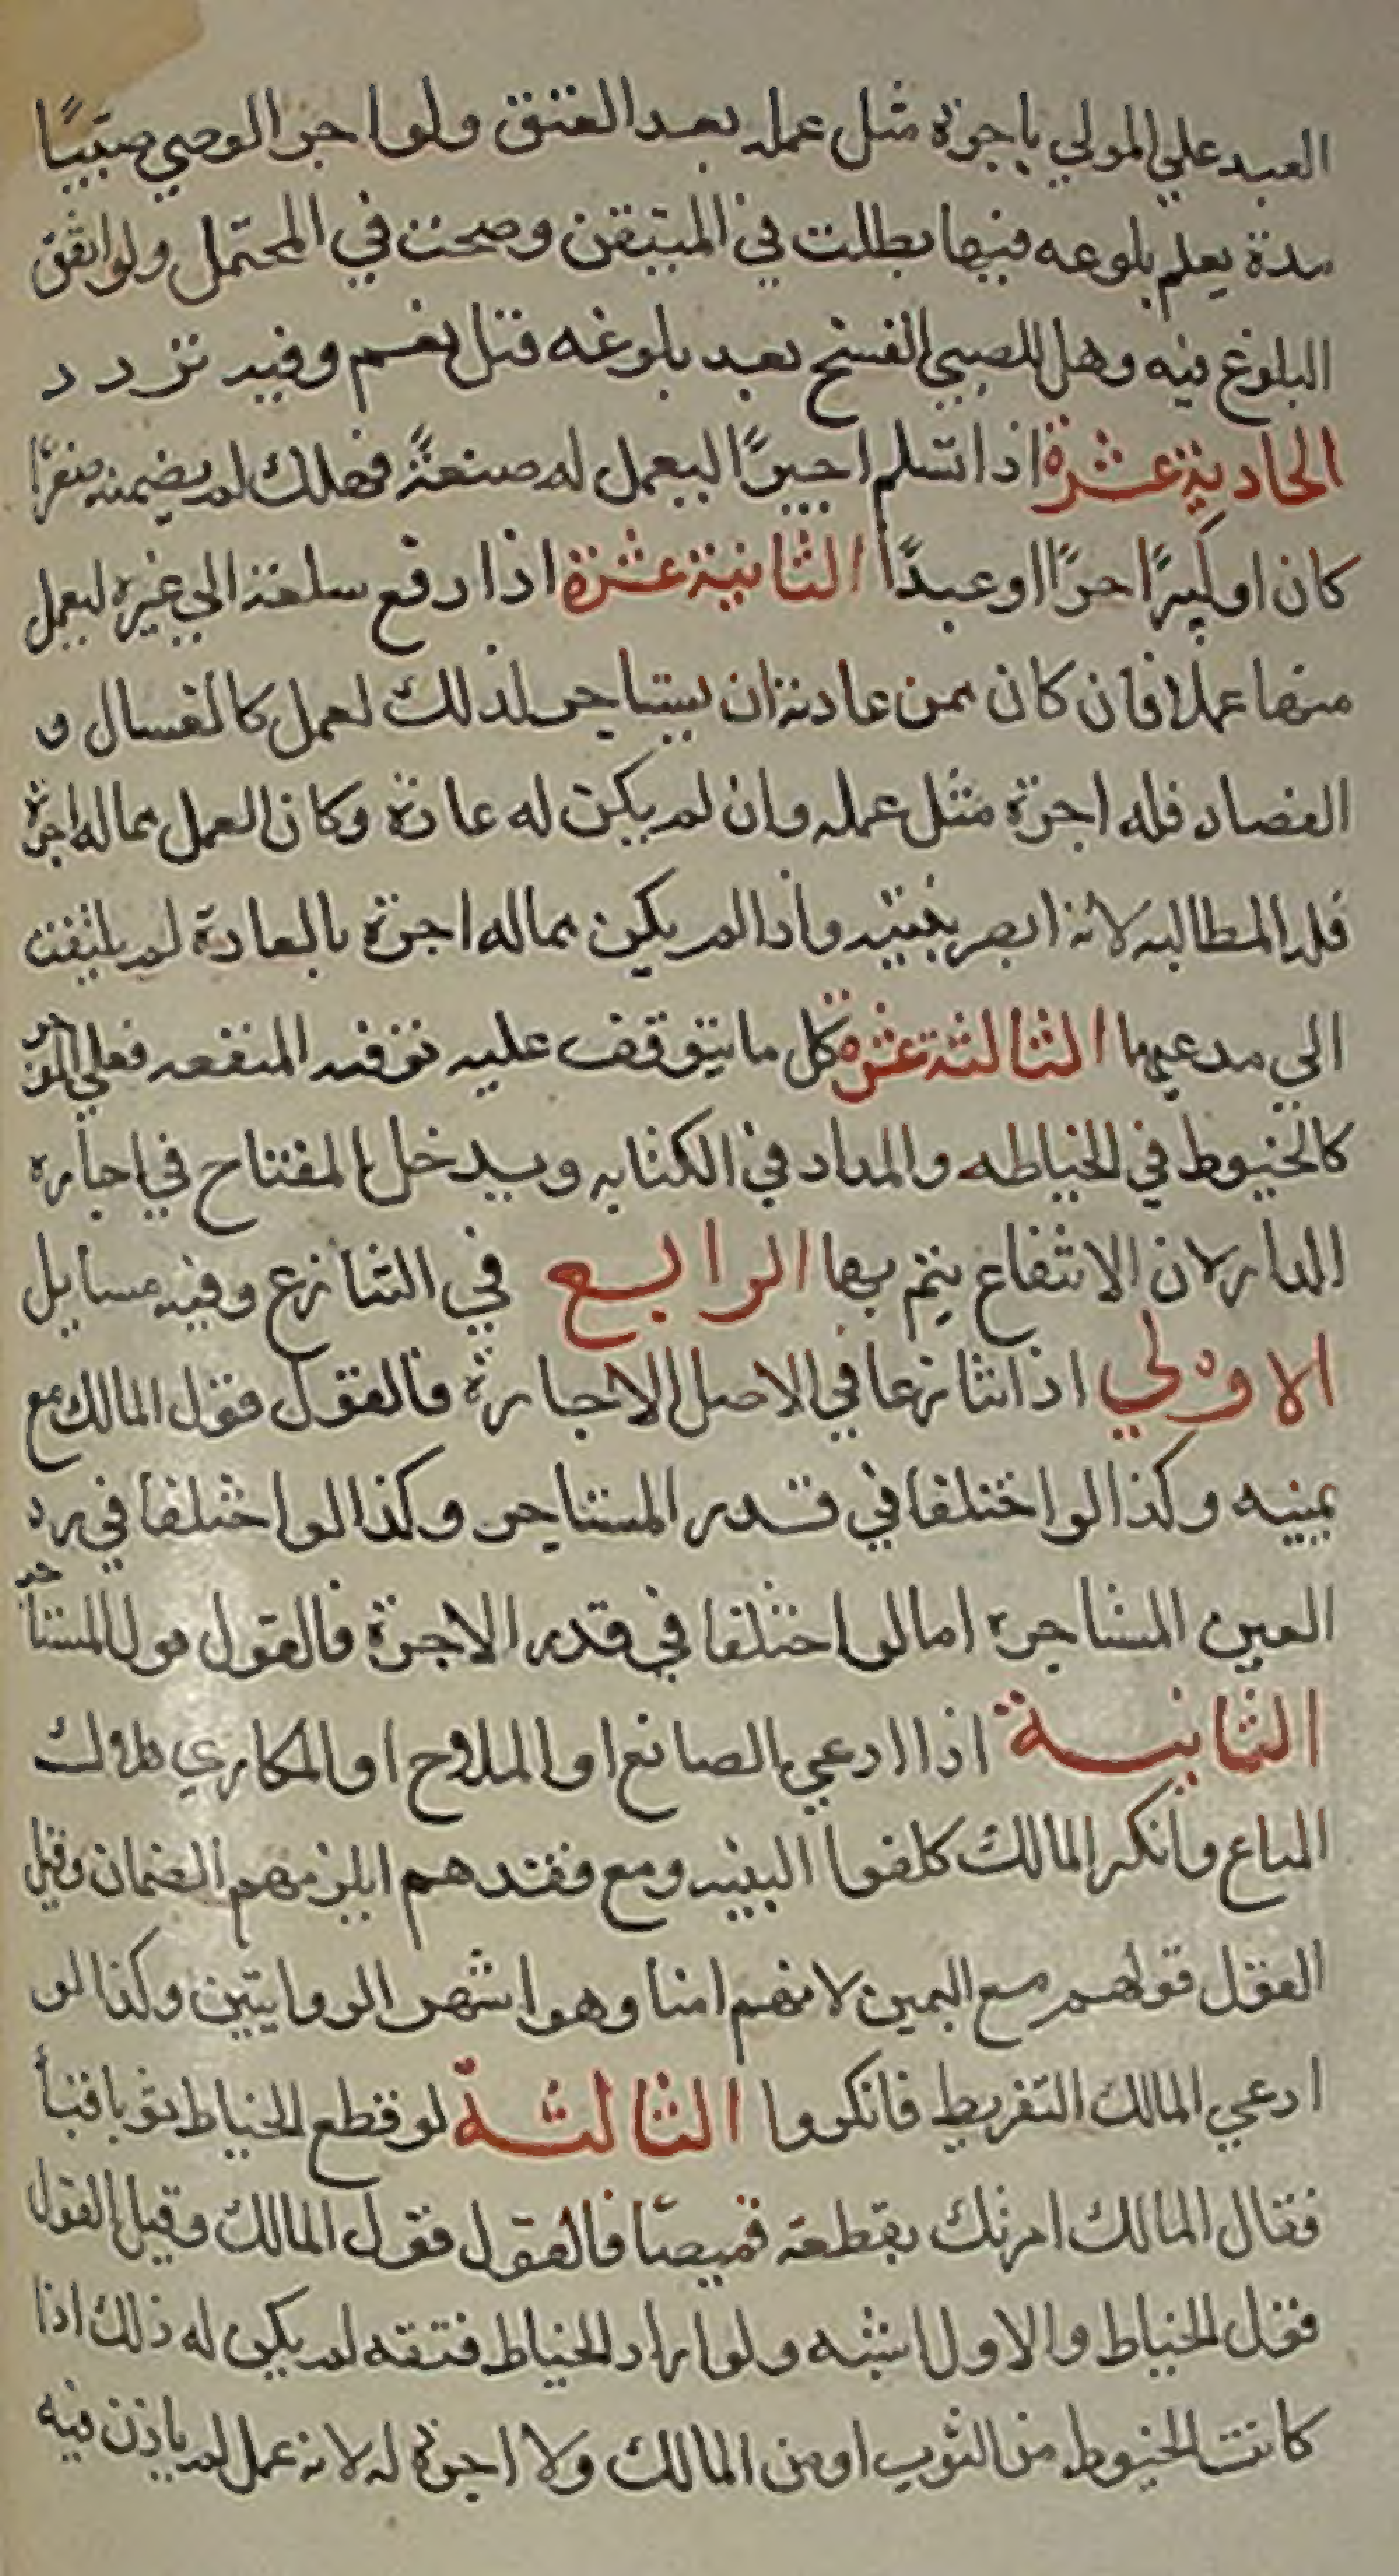 العبد علي المولي باجرة مثل عمله بعد العتق ولو اجر الوصي صبيًا
مدة يعلم بلوعه فيها بطلت في المتيقن وصحت في المحتمل ولو اتفق
البلوغ فيه وهل للصبي الفسخ بعد بلوغه قيل نعم وفيه تردد
الحادية عشرة اذا تسلم اجيرًا ليعمل له صنعةً فهلك لم يضمنه صغرًا
كان او كبيرًا حرًا او عبدًا الثانية عشرة اذا دفع سلعة الي غيره ليعمل
منها عملا فان كان ممن عادته ان يستاجر لذلك لعمل كالغسال و
القصاد فله اجرة مثل عمله وان لم يكن له عادة وكان العمل مماله اجرة
فله المطالبه لانه ابصر بنيته واذا لم يكن مماله اجرة بالعادة لم يلتفت
الي مدعيها الثالثة عشرة كلما يتوقف عليه توفيه المنفعه فعلي الموجر
كالخيوط في الخياطه والمداد في الكتابه ويدخل المفتاح في اجاره
الدار لان الانتفاع يتم بها الرابع في التنازع وفيه مسايل
الاولي اذا تنازعا في الاصل الاجارة فالقول قول المالك مع
يمينه وكذا لو اختلفا في قدر المستاجر وكذا لو اختلفا في رد
العين المستاجره اما لو اختلفا في قدر الاجرة فالقول قول المستاجر
الثانية اذا ادعي الصانع او الملاح او المكاري هلاك
المتاع وانكر المالك كلفوا البينه ومع فقدهم ايلزمهم الضمان وقيل
القول قولهم مع اليمين لانهم امنا وهو اشهر الروايتين وكذا لو
ادعي المالك التفريط فانكروا الثالثة لو قطع الخياط ثوبا قبأ
فقال المالك امرتك بقطعه قميصا فالقول قول المالك وقيل القول
قول الخياط والاول اشبه ولو اراد الخياط فتقه لم يكن له ذلك اذا
كانت الخيوط من الثوب او من المالك ولا اجرة له لانه عمل لم ياذن فيه